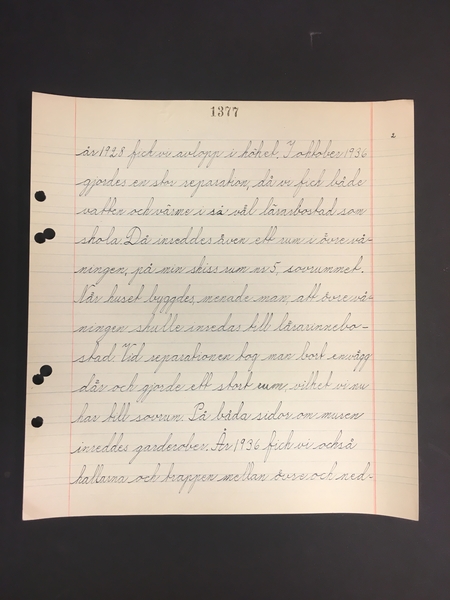 1377
2
år 1928 fick vi avlopp i köket. I oktober 1936
gjordes en stor reparation, då vi fick både
vatten och värme i så väl lärarbostad som
skola. Då inreddes även ett rum i övre vå-
ningen, på min skiss rum nr 5, sovrummet.
När huset byggdes, menade man, att övre vå-
ningen skulle inredas till lärarinnebo-
stad. Vid reparationen tog man bort en vägg
där och gjorde ett stort rum, vilket vi nu
har till sovrum. På båda sidor om muren
inreddes garderober. År 1936 fick vi också
hallarna och trappen mellan övre och ned-